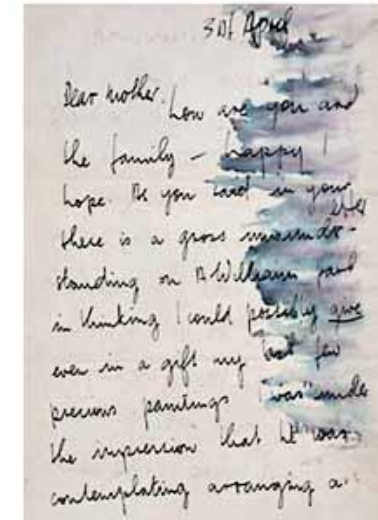 April
Dear Mother. how are you and
the family – happy I
hope. As you said in your
letter
there is a gross misunder-
standing on B. Williams part
in thinking I could possibly give
even in a gift my last few
precious paintings I was under
the impression that he was
contemplating arranging a